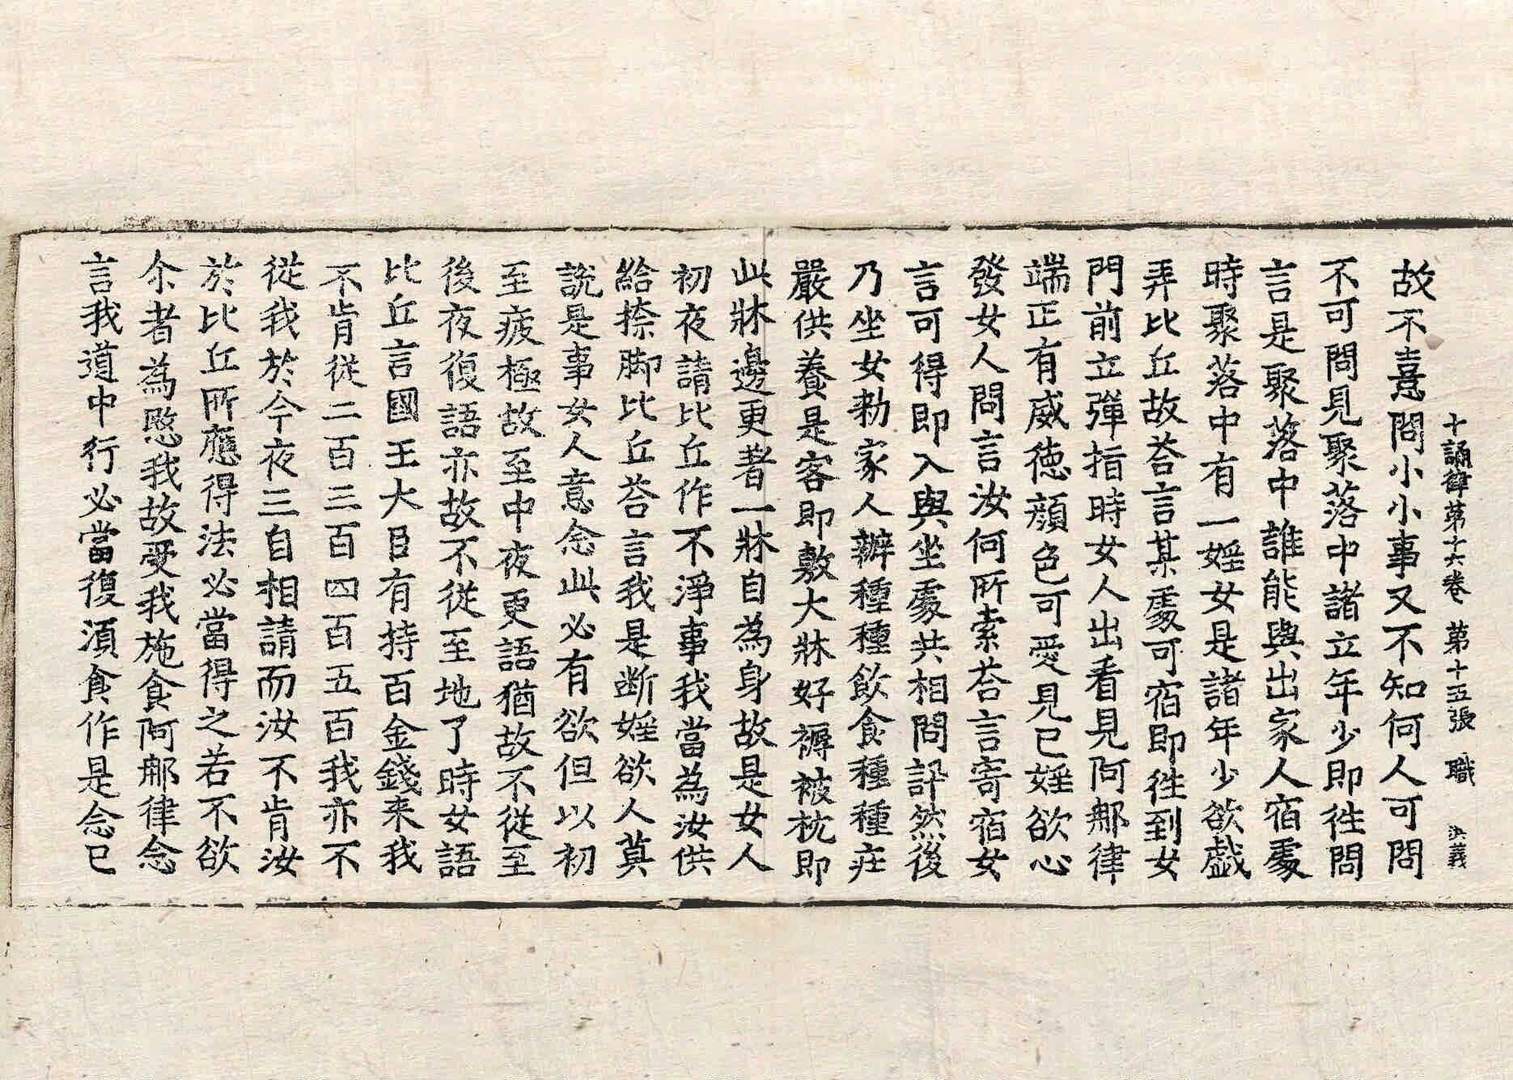 十誦律第十六卷 第十五張 職 洪義
故不憙問小小事又不知何人可問
不可問見聚落中諸立年少即徃問
言是聚落中誰能與出家人宿䖏
時聚落中有一婬女是諸年少欲戱
弄比丘故荅言某䖏可宿即徃到女
門前立彈指時女人出看見阿那律
端正有威徳顔色可愛見已婬欲心
發女人問言汝何所索荅言寄宿女
言可得即入與坐䖏共相問訊然後
乃坐女勑家人辦種種飲食種種庄
嚴供養是客即敷大牀好褥被枕即
此牀邊更著一牀自為身故是女人
初夜請比丘作不淨事我當為汝供
給捺脚比丘荅言我是断婬欲人莫
說是事女人意念此必有欲但以初
至疲極故至中夜更語猶故不從至
後夜復語亦故不從至地了時女語
比丘言國王大臣有持百金錢来我
不肯從二百三百四百五百我亦不
從我於今夜三自相請而汝不肯汝
於比丘所應得法必當得之若不欲
尒者為愍我故受我施食阿那律念
言我道中行必當復湏食作是念已